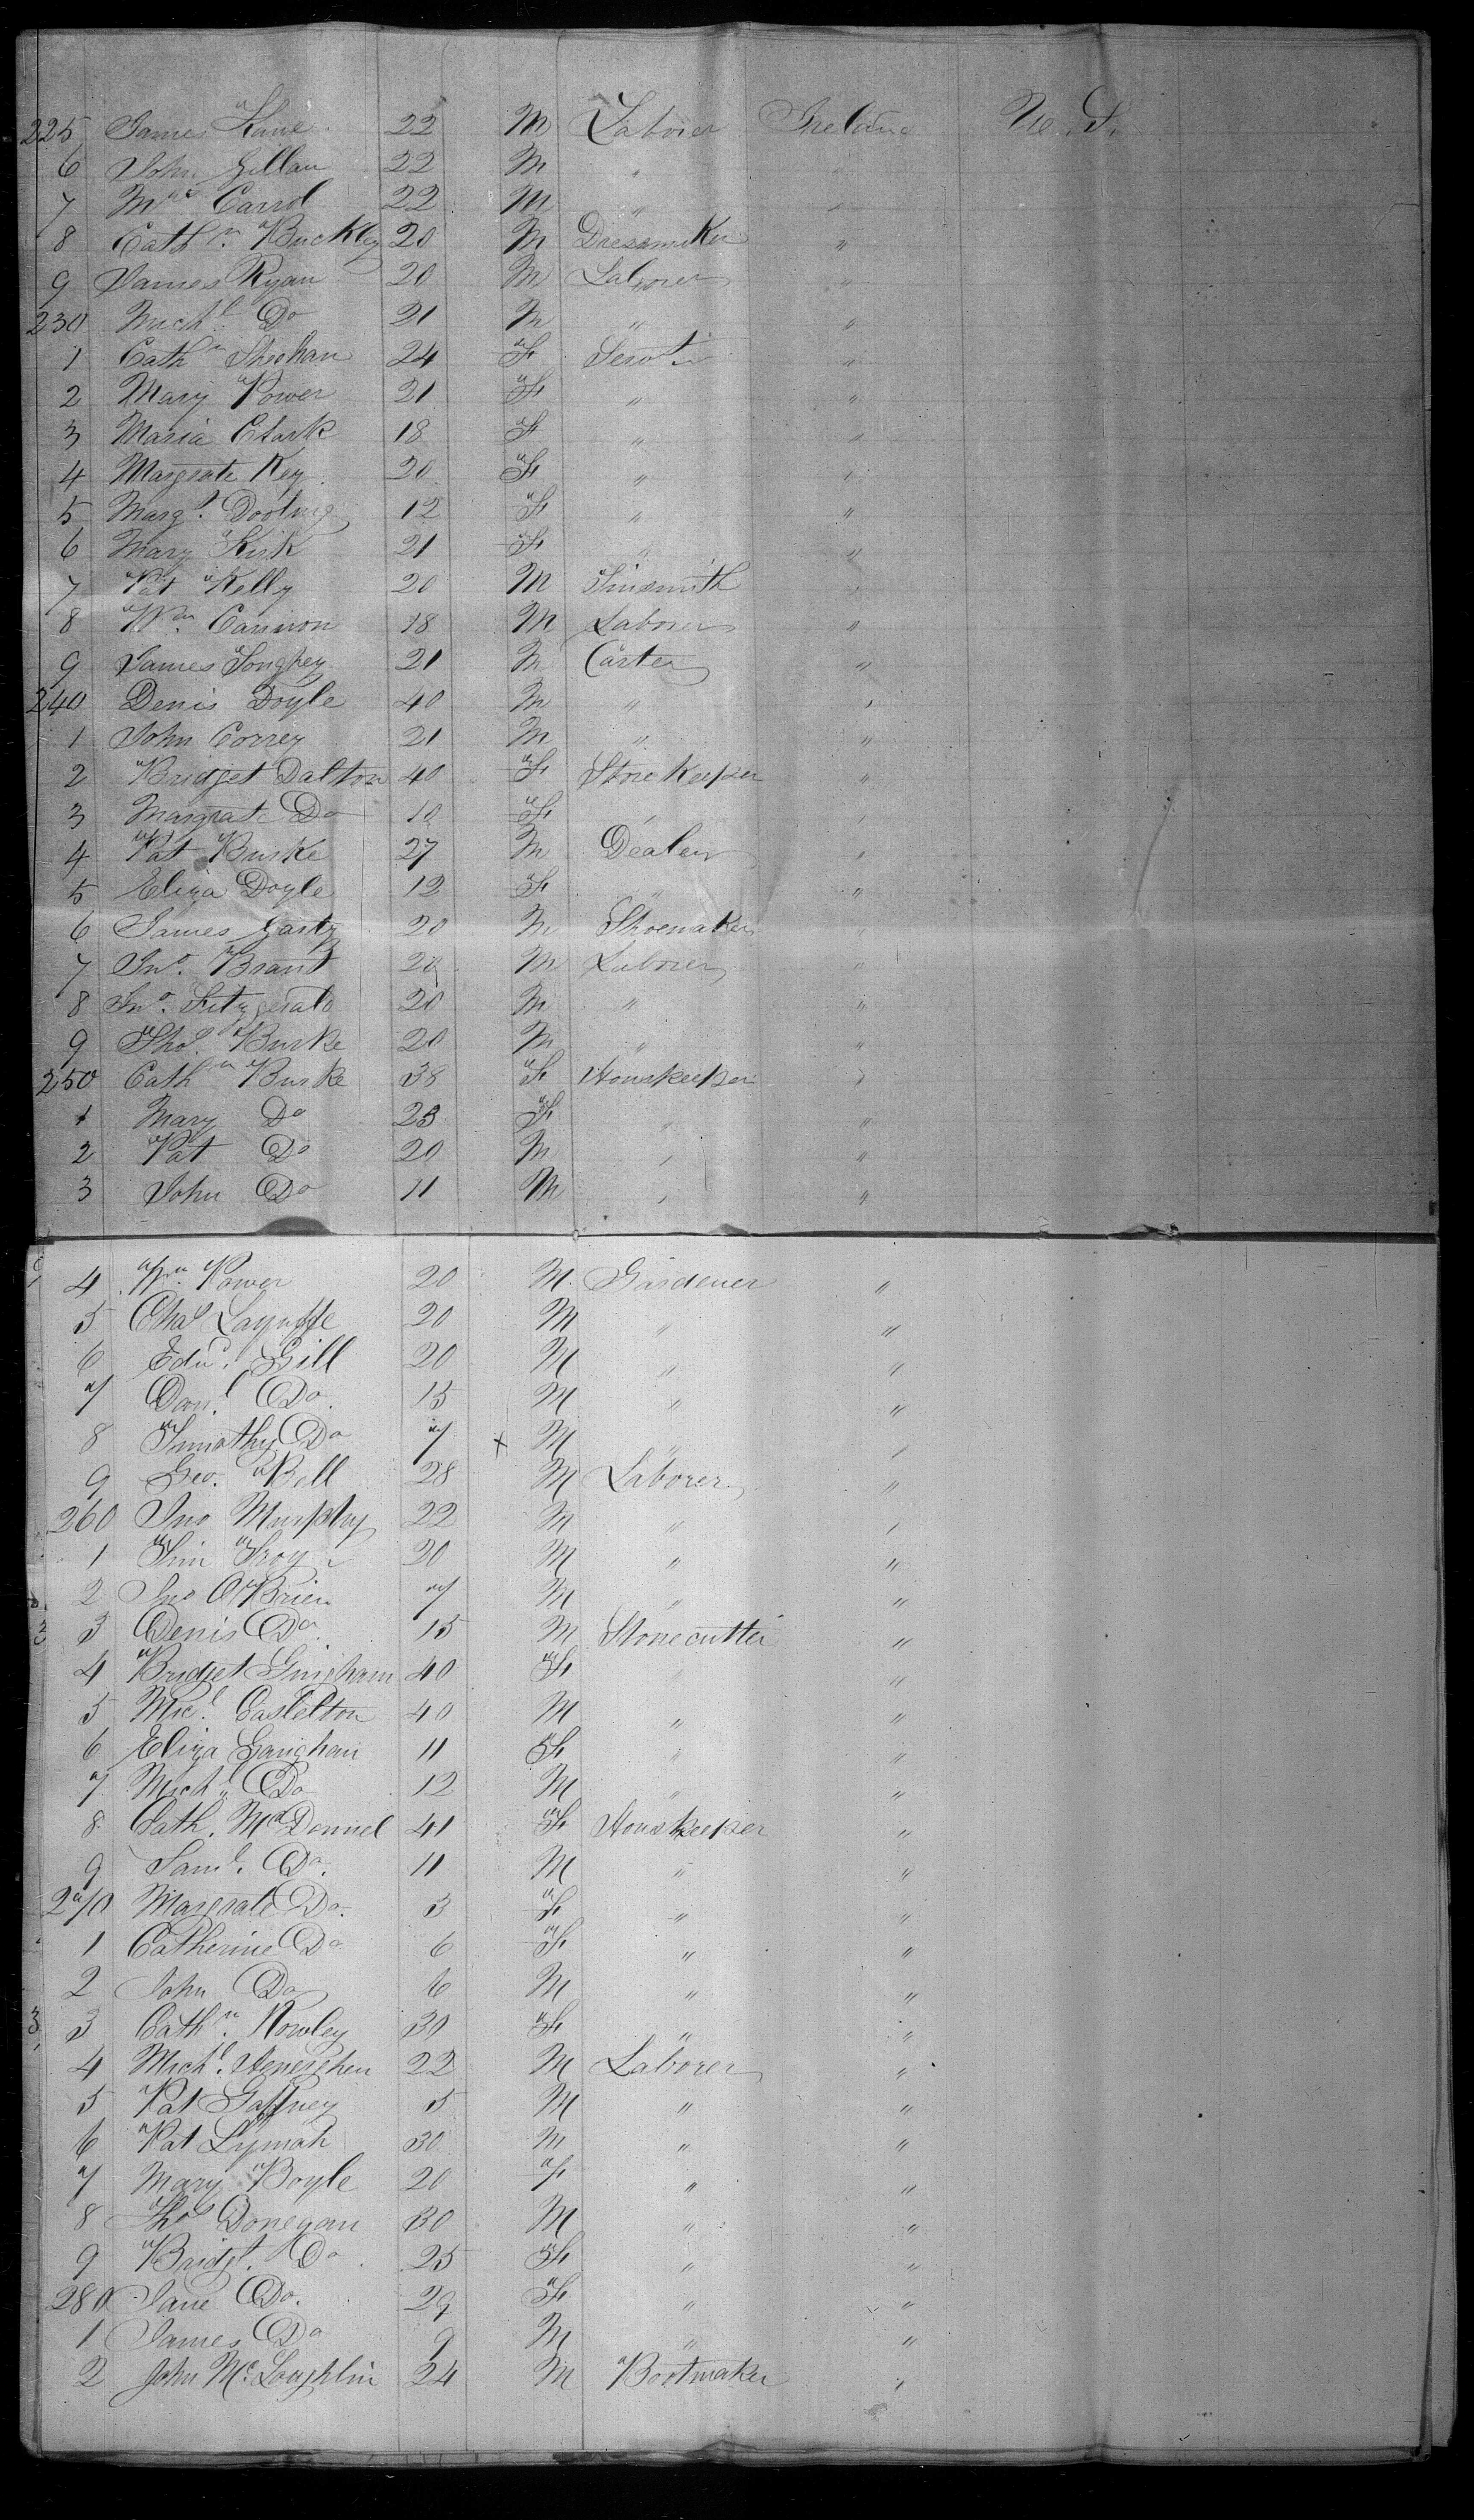 225 James Kane 22 M Laborer Ireland U. S.
6 John Gillan 22 M "
7 Carrol 22 M " "
8 Cath^n. Buckley 20 M Dressmaker "
9 James Ryan 20 M Laborer "
230 Mich^l. Do 21 M " "
1 Cath^n Sheehan 24 F Servt "
2 Mary Power 21 F " "
3 Maria Clark 18 F " "
4 Margrate Key 20 F " "
5 Marg^t. Dooling 12 F " "
6 Mary Kirk 21 F " "
7 Pat Kelly 20 M Tinsmith "
8 W^m. Cannon 18 M Laborer "
9 James 21 M Carter "
240 Denis Doyle 40 M " "
1 John Correy 21 M " "
2 Bridget Dalton 40 F Store Keeper "
3 Margrate Do 10 F " "
4 Pat Burke 27 M Dealer "
5 Eliza Doyle 12 F " "
6 James Garty 20 M Shoemaker "
7 Jn^o. Brant M Laborer "
8 Jn^o. Fitzgerald 20 M " "
9 Tho^s. Burke 20 M " "
250 Cath^n Burke 38 F Houskeeper "
1 Mary Do 23 F " "
2 Pat Do 20 M " "
3 John Do 11 M " "
4 W^m. Power 20 M. Gardener "
5 Cha^s 20 M " "
6 Edw^d. Gill 20 M " "
7 Dan^l. Do. 15 M " "
8 Timothy Do 7 x M " "
9 Geo. Bell 28 M Laborer "
260 Jno Murphy 22 M " "
1 Tim Troy 20 M " "
2 Jno O'Brien 7 M " "
3 Denis Do 15 M Stonecutter "
4 Bridget 40 F " "
5 Mic^l. Castelton 40 M " "
6 Eliza Gaughan 11 F " "
7 Mich^l. Do 12 M " "
8 Cath. McDonnel 41 F Houskeeper "
9 Sam^l. Do. 11 M " "
270 Margrate Do. 3 F " "
1 Catherine Do 6 F " "
2 John Do 6 M " "
3 Cath^n. Rowley 30 F " "
4 Mich^l. Heneghen 22 M Laborer "
5 Pat Gaffney 5 M " "
6 Pat 30 M " "
7 Mary Boyle 20 F " "
8 Tho^s Donegan 30 M " "
9 Bridg^t. Do 25 F " "
280 Jane Do. 29 F " "
1 James Do 9 M " "
2 John Mc Loughlin 24 M Bootmaker "